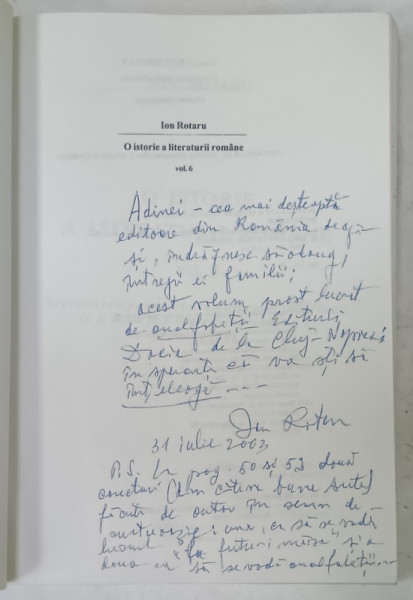 Ion Rotaru
O istorie a literaturii române
vol. 6
Adinei – cea mai deșteaptă
editoare din România de azi
și, îndrăznesc să adaug,
întregii ei familii;
acest volum prost lucrat
de analfabeții Editurii
Dacia de la Cluj-Napoca
în speranța că va ști să
înțeleagă ---
Ion Rotaru
31 iulie 2003
P.S. La pag. 50 și 53 două
corecturi (din câteva bune sute)
făcute de autor în semn de
una, ca să se vadă
și a
doua ca să se vadă analfabeții